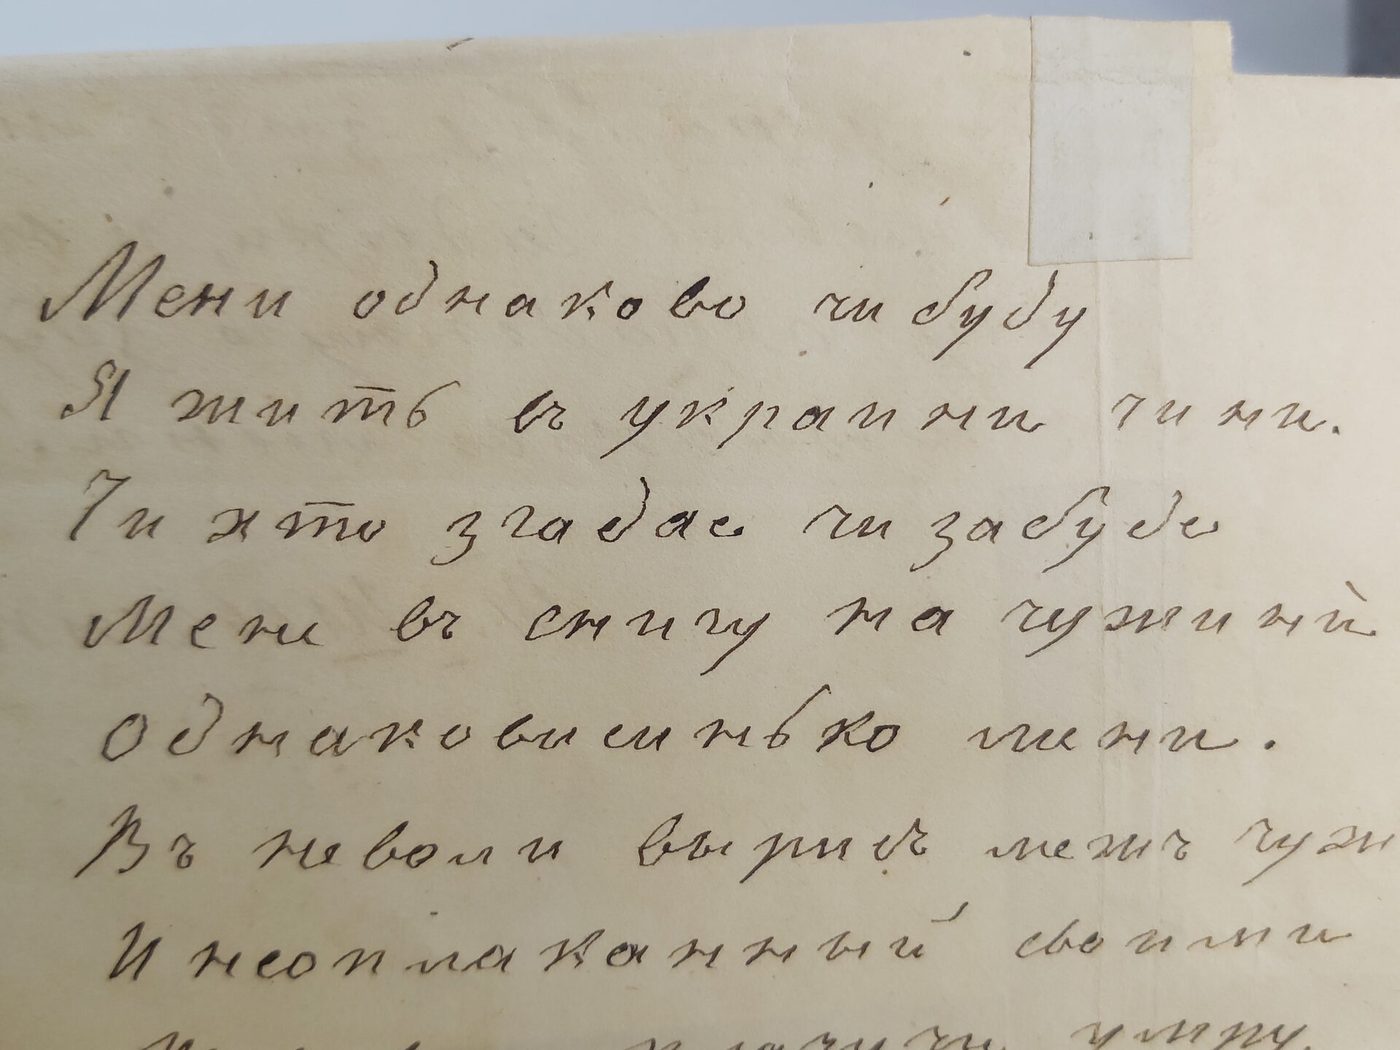 Мени однаково чи буду
Я жить въ украини чи ни.
Чи хто згадае чи забуде
Мене въ снигу на чужині
Однаковисинько мени.
Въ неволи вырисъ межъ чуж
И неоплаканный своими
умру.